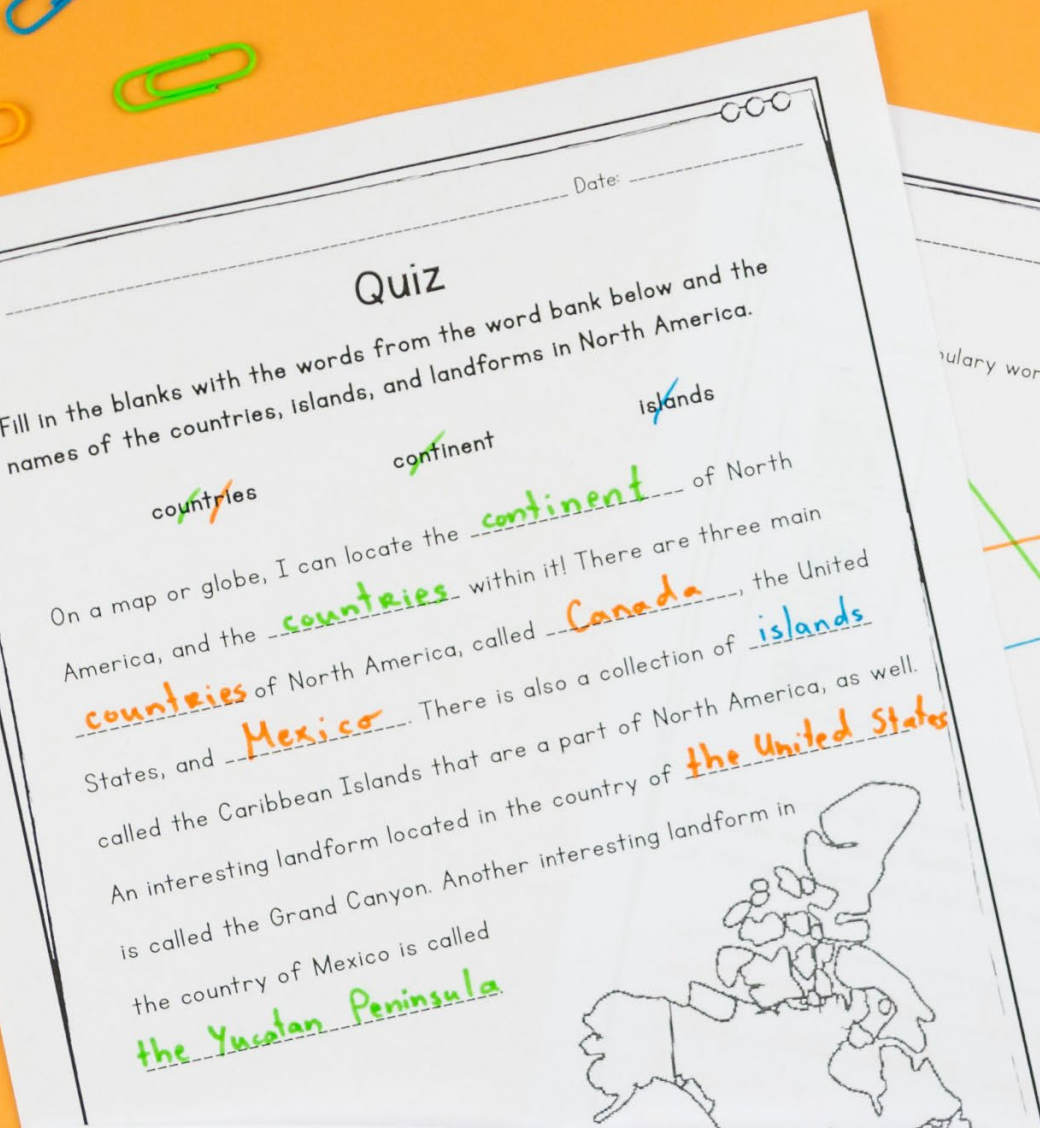 Date:
Quiz
Fill in the blanks with the words from the word bank below and the
names of the countries, islands, and landforms in North America.
countries continent islands
On a map or globe, I can locate the continent of North
America, and the countries within it! There are three main
countries of North America, called Canada, the United
States, and Mexico. There is also a collection of islands
called the Caribbean Islands that are a part of North America, as well.
An interesting landform located in the country of the United States
is called the Grand Canyon. Another interesting landform in
the country of Mexico is called
the Yucatan Peninsula